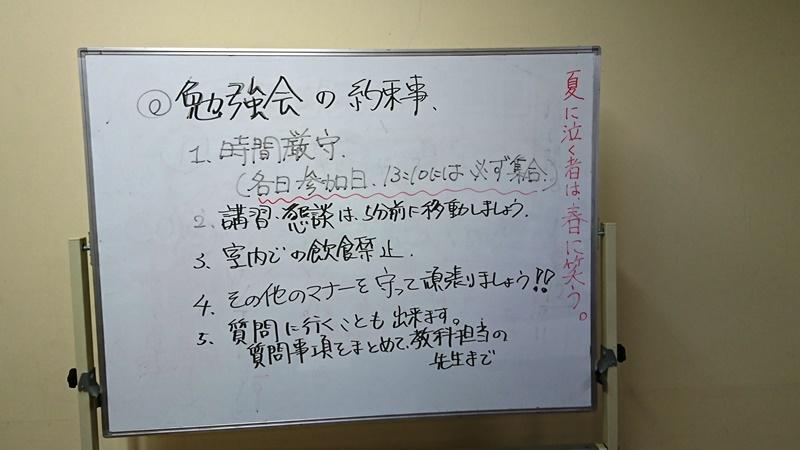 ◎勉強会の約束事、
1、時間厳守.
(各日参加日、13:10には必ず集合.)
2、講習・懇談は、5分前に移動しましょう.
3、室内での飲食禁止.
4、その他のマナーを守って頑張りましょう!!
5、質問に行くことも出来ます。
質問事項をまとめて、教科担当の
先生まで
夏に泣く者は、春に笑う。